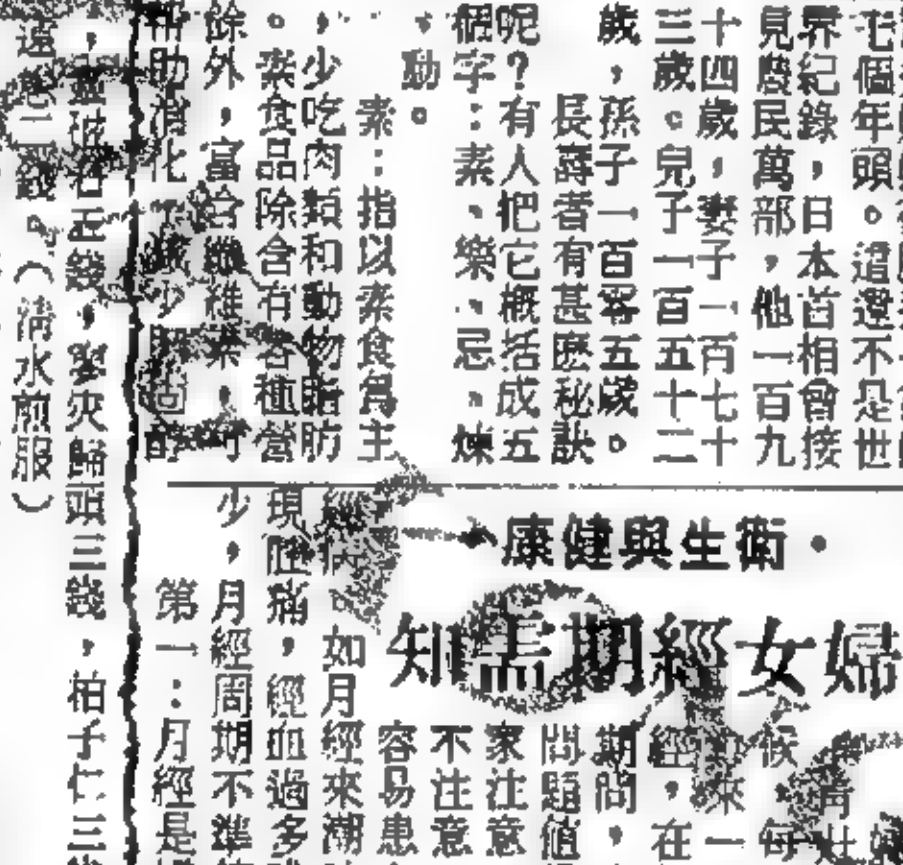 宅個年頭。這還不是世
界紀錄,日本首相曾接
見農民萬部,他一百九
十四歲,妻子一百七十
三歲。兒子一百五十二
歲,孫子一百零五歲。
長壽者有甚麽秘訣
呢?有人把它概括成五
個字:素、樂、忌、煉
、動。
素:指以素食爲主
,少吃肉類和動物脂肪
。素食品除含有各種營
餘外,富含纖維素,可
幫助消化,減少膽固醇
衛生與健康
婦女經期需知
候,每
來一
經,在
期間,
問題值
家注意
不注意
容易患
經病。如月經來潮
現肚痛,經血過多
少,月經周期不準
第一:月經是
石五錢,寮夾歸頭三錢,柏子仁三
遠志二錢。(清水煎服)